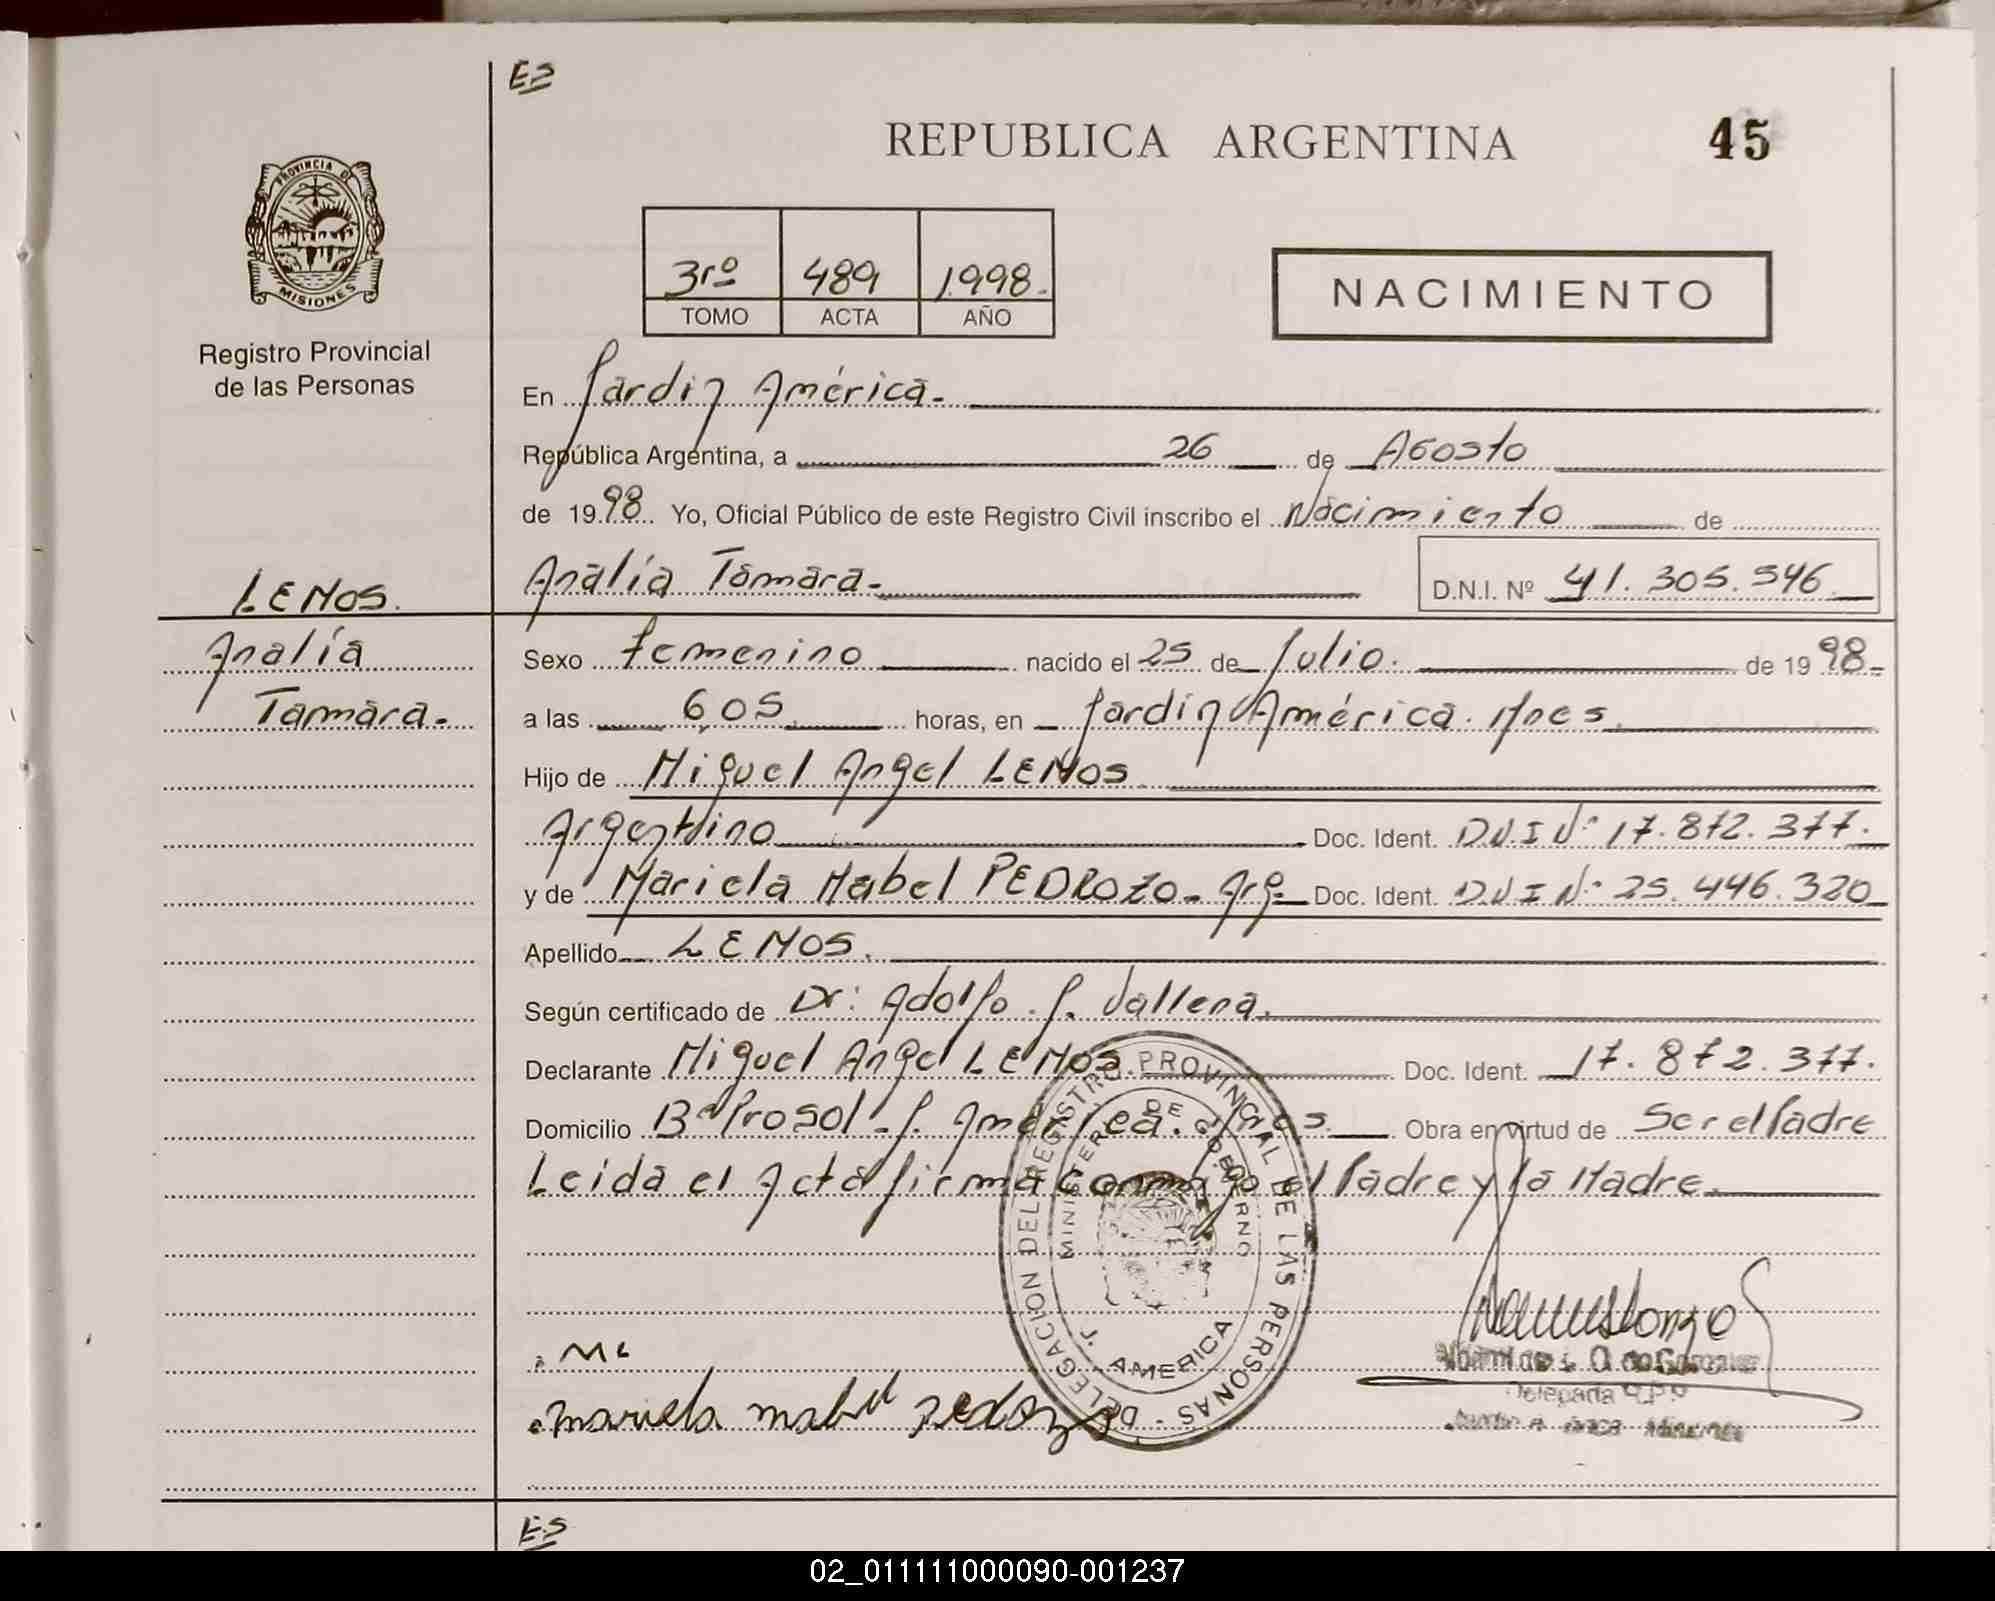 ES
REPUBLICA ARGENTINA 45
PROVINCIA DE MISIONES
3ro 489 1998.
TOMO ACTA AÑO
NACIMIENTO
Registro Provincial
de las Personas
En Jardín América.
República Argentina, a 26 de Agosto
de 1998 Yo, Oficial Público de este Registro Civil inscribo el Nacimiento de
LEMOS.
Analía Tamara. D.N.I. Nº 41.305.546
Analía
Sexo femenino nacido el 25 de Julio. de 1998
Tamara.
a las 6,05 horas, en Jardín América. Mnes.
Hijo de Miguel Angel LEMOS
Argentino Doc. Ident. D.N.I Nº 17.872.377.
y de Mariela Mabel PEDROZO - Arg. Doc. Ident. D.N.I Nº 25.446.320
Apellido LEMOS.
Según certificado de Dr: Adolfo J.
Declarante Miguel Angel LEMOS. Doc. Ident. 17.872.377.
Domicilio Bº Prosol - J. América. Mnes. Obra en virtud de Ser el Padre
Leida el Acta firma conmigo el Padre y la Madre.
DELEGACION DEL REGISTRO PROVINCIAL DE LAS PERSONAS -
MINISTERIO DE GOBIERNO
J. AMERICA
mariela mabel pedozo
Delegada
ES
02_011111000090-001237